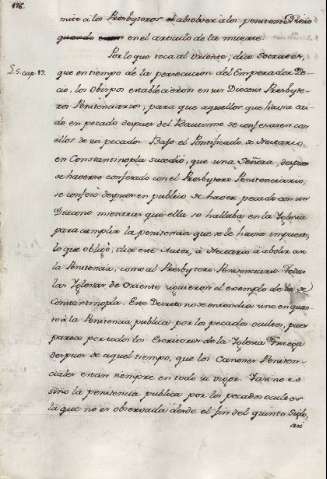 mite à los Presbyteros absolver à los penitentes sino
quando en el articulo de la muerte
Por lo que toca al Oriente, dice Socrates,
L. 5. cap. 19.
que en tiempo de la persecucion del Emperador De-
cio, los Obispos establecieron en su Diocesi Presbyte-
ros Penitenciarios, para que aquellos que havian cai-
do en pecado despues del Bautismo se confesaran con
ellos de su pecado. Bajo el Pontificado de Nectario,
en Constantinopla sucedió, que una Señora, despues
de haverse confesado con el Presbytero Penitenciario,
se confesó despues en publico de haver pecado con un
Diacono mientras que ella se hallaba en la Iglesia
para cumplir la penitencia que se le havia impuesto,
lo que obligó, dice este Autor, à Nectario à abolir
la Penitencia, como al Presbytero Penitenciario. Todas
las Iglesias de Oriente siguieron el exemplo de la de
Constantinopla. Este Decreto no se entendia sino en quan-
to à la Penitencia publica por los pecados ocultos, pues
parece por todos los Escritores de la Iglesia Griega
despues de aquel tiempo, que los Canones Peniten-
ciales estan siempre en todo su vigor. Tan no es
sino la penitencia publica por los pecados ocultos
la que no es observada desde el fin del quinto Siglo,
asi